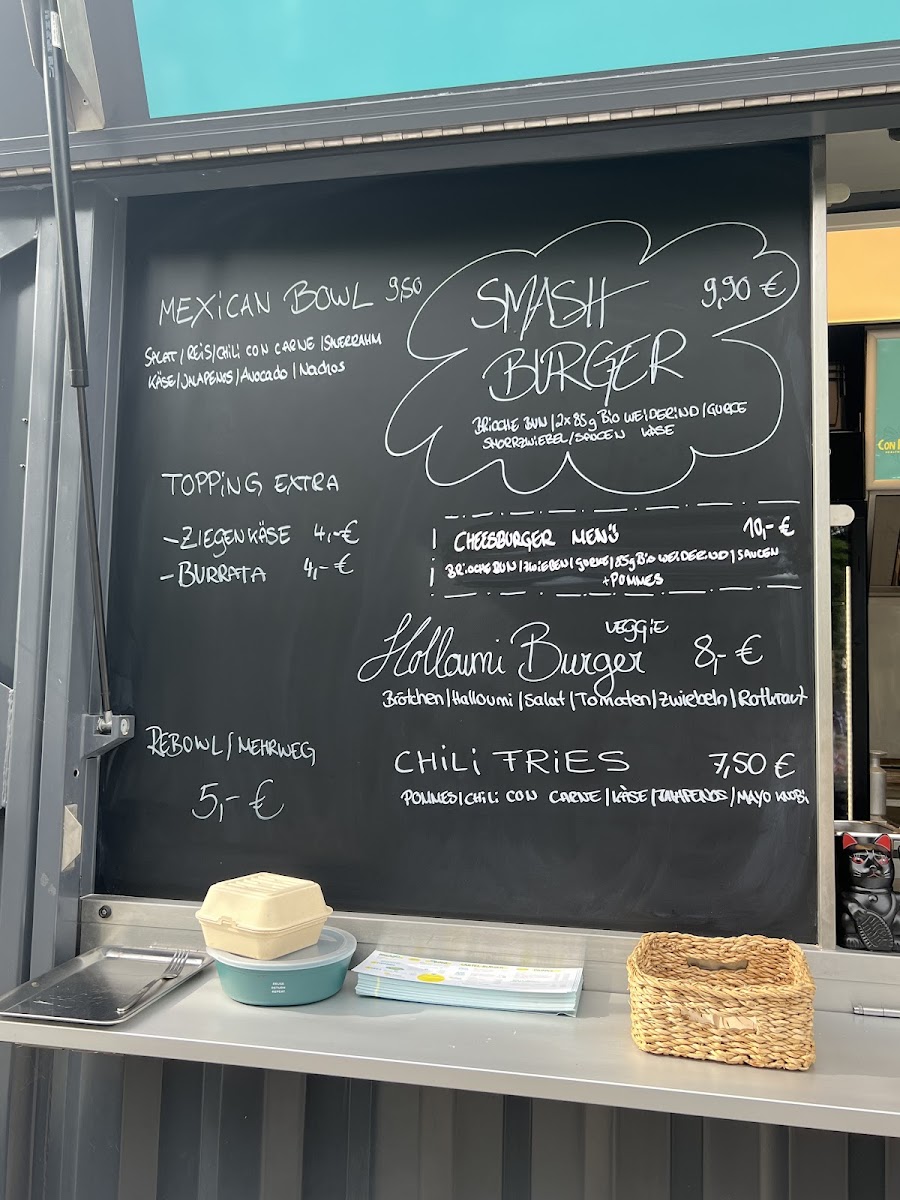 MEXICAN BOWL 9,50
SALAT / REIS / CHILI CON CARNE / SAUERRAHM
KÄSE / JALAPENOS / Avocado / Nachos
SMASH 9,90 €
BURGER
BRIOCHE BUN / 2x 85g Bio WEIDERIND / GURKE
SHMORZWIEBEL / SAUCEN KÄSE
TOPPING EXTRA
- ZIEGENKÄSE 4,- €
- BURRATA 4,- €
CHEESBURGER MENÜ 10,- €
BRIOCHE BUN / ZWIEBEN / GURKE / 85g Bio WEIDERIND / SAUCEN
+ POMMES
VEGGIE
Halloumi Burger 8,- €
Brötchen / Halloumi / Salat / Tomaten / Zwiebeln / Rotkraut
REBOWL / MEHRWEG
5,- €
CHILI FRIES 7,50 €
POMMES / CHILI CON CARNE / KÄSE / JALAPENOS / MAYO KNOBI
REUSE
RETURN
REPEAT